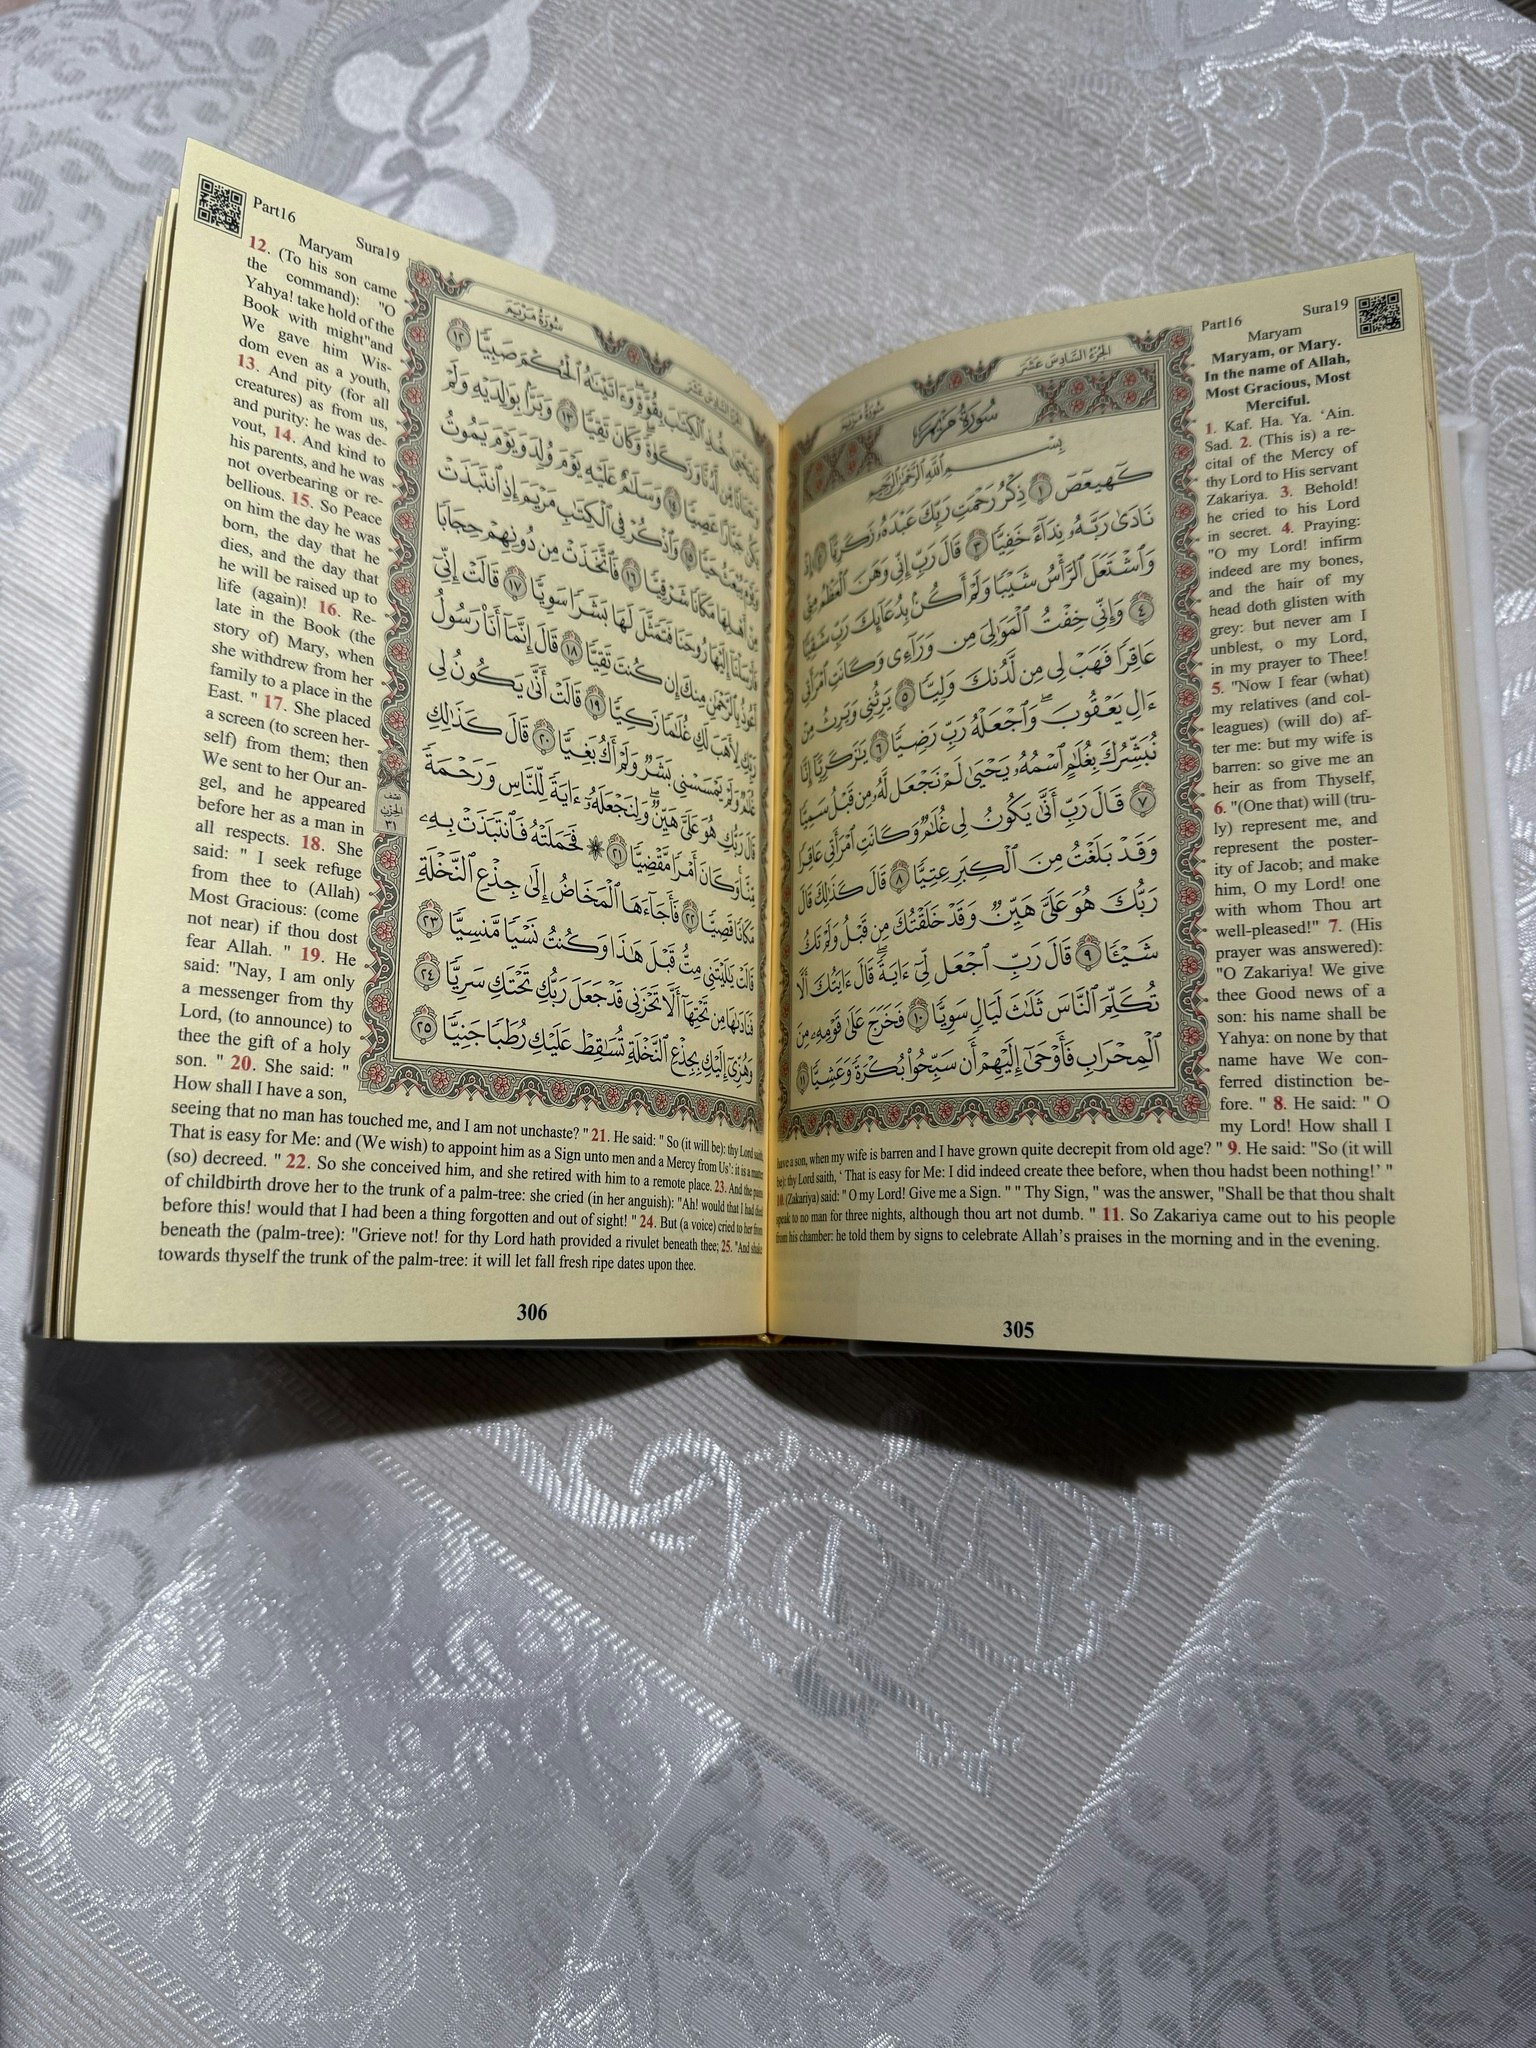 Part16 Sura19
Maryam
Maryam, or Mary.
In the name of Allah,
Most Gracious, Most
Merciful.
1. Kaf. Ha. Ya. ‘Ain.
Sad. 2. (This is) a re-
cital of the Mercy of
thy Lord to His servant
Zakariya. 3. Behold!
he cried to his Lord
in secret. 4. Praying:
"O my Lord! infirm
indeed are my bones,
and the hair of my
head doth glisten with
grey: but never am I
unblest, o my Lord,
in my prayer to Thee!
5. "Now I fear (what)
my relatives (and col-
leagues) (will do) af-
ter me: but my wife is
barren: so give me an
heir as from Thyself,
6. "(One that) will (tru-
ly) represent me, and
represent the poster-
ity of Jacob; and make
him, O my Lord! one
with whom Thou art
well-pleased!" 7. (His
prayer was answered):
"O Zakariya! We give
thee Good news of a
son: his name shall be
Yahya: on none by that
name have We con-
ferred distinction be-
fore. " 8. He said: " O
my Lord! How shall I
have a son, when my wife is barren and I have grown quite decrepit from old age? " 9. He said: "So (it will
be): thy Lord saith, ‘ That is easy for Me: I did indeed create thee before, when thou hadst been nothing!’ "
10. (Zakariya) said: " O my Lord! Give me a Sign. " " Thy Sign, " was the answer, "Shall be that thou shalt
speak to no man for three nights, although thou art not dumb. " 11. So Zakariya came out to his people
from his chamber: he told them by signs to celebrate Allah’s praises in the morning and in the evening.
الجزء السادس عشر سورة مريم
سُورَةُ مَرْيَمَ
بِسْمِ اللَّهِ الرَّحْمَٰنِ الرَّحِيمِ
كٓهيعٓصٓ ١ ذِكْرُ رَحْمَتِ رَبِّكَ عَبْدَهُۥ زَكَرِيَّآ ٢ إِذْ
نَادَىٰ رَبَّهُۥ نِدَآءً خَفِيًّا ٣ قَالَ رَبِّ إِنِّي وَهَنَ ٱلْعَظْمُ مِنِّي
وَٱشْتَعَلَ ٱلرَّأْسُ شَيْبًا وَلَمْ أَكُنۢ بِدُعَآئِكَ رَبِّ شَقِيًّا
٤ وَإِنِّي خِفْتُ ٱلْمَوَٰلِيَ مِن وَرَآءِي وَكَانَتِ ٱمْرَأَتِي
عَاقِرًا فَهَبْ لِي مِن لَّدُنكَ وَلِيًّا ٥ يَرِثُنِي وَيَرِثُ مِنْ
ءَالِ يَعْقُوبَۖ وَٱجْعَلْهُ رَبِّ رَضِيًّا ٦ يَٰزَكَرِيَّآ إِنَّا
نُبَشِّرُكَ بِغُلَٰمٍ ٱسْمُهُۥ يَحْيَىٰ لَمْ نَجْعَل لَّهُۥ مِن قَبْلُ سَمِيًّا
٧ قَالَ رَبِّ أَنَّىٰ يَكُونُ لِي غُلَٰمٌ وَكَانَتِ ٱمْرَأَتِي عَاقِرًا
وَقَدْ بَلَغْتُ مِنَ ٱلْكِبَرِ عِتِيًّا ٨ قَالَ كَذَٰلِكَ قَالَ
رَبُّكَ هُوَ عَلَيَّ هَيِّنٌ وَقَدْ خَلَقْتُكَ مِن قَبْلُ وَلَمْ تَكُ
شَيْـًٔا ٩ قَالَ رَبِّ ٱجْعَل لِّيٓ ءَايَةًۖ قَالَ ءَايَتُكَ أَلَّا
تُكَلِّمَ ٱلنَّاسَ ثَلَٰثَ لَيَالٍ سَوِيًّا ١٠ فَخَرَجَ عَلَىٰ قَوْمِهِۦ مِنَ
ٱلْمِحْرَابِ فَأَوْحَىٰٓ إِلَيْهِمْ أَن سَبِّحُوا۟ بُكْرَةً وَعَشِيًّا ١١
305
Part16 Sura19
Maryam
12. (To his son came
the command): "O
Yahya! take hold of the
Book with might"and
We gave him Wis-
dom even as a youth,
13. And pity (for all
creatures) as from us,
and purity: he was de-
vout, 14. And kind to
his parents, and he was
not overbearing or re-
bellious. 15. So Peace
on him the day he was
born, the day that he
dies, and the day that
he will be raised up to
life (again)! 16. Re-
late in the Book (the
story of) Mary, when
she withdrew from her
family to a place in the
East. " 17. She placed
a screen (to screen her-
self) from them; then
We sent to her Our an-
gel, and he appeared
before her as a man in
all respects. 18. She
said: " I seek refuge
from thee to (Allah)
Most Gracious: (come
not near) if thou dost
fear Allah. " 19. He
said: "Nay, I am only
a messenger from thy
Lord, (to announce) to
thee the gift of a holy
son. " 20. She said: "
How shall I have a son,
seeing that no man has touched me, and I am not unchaste? " 21. He said: " So (it will be): thy Lord saith,
That is easy for Me: and (We wish) to appoint him as a Sign unto men and a Mercy from Us’: it is a matter
(so) decreed. " 22. So she conceived him, and she retired with him to a remote place. 23. And the pains
of childbirth drove her to the trunk of a palm-tree: she cried (in her anguish): "Ah! would that I had died
before this! would that I had been a thing forgotten and out of sight! " 24. But (a voice) cried to her from
beneath the (palm-tree): "Grieve not! for thy Lord hath provided a rivulet beneath thee; 25. "And shake
towards thyself the trunk of the palm-tree: it will let fall fresh ripe dates upon thee.
الجزء السادس عشر سورة مريم
يَٰيَحْيَىٰ خُذِ ٱلْكِتَٰبَ بِقُوَّةٍۖ وَءَاتَيْنَٰهُ ٱلْحُكْمَ صَبِيًّا ١٢
وَحَنَانًا مِّن لَّدُنَّا وَزَكَوٰةًۖ وَكَانَ تَقِيًّا ١٣ وَبَرًّۢا بِوَٰلِدَيْهِ وَلَمْ
يَكُن جَبَّارًا عَصِيًّا ١٤ وَسَلَٰمٌ عَلَيْهِ يَوْمَ وُلِدَ وَيَوْمَ يَمُوتُ
وَيَوْمَ يُبْعَثُ حَيًّا ١٥ وَٱذْكُرْ فِي ٱلْكِتَٰبِ مَرْيَمَ إِذِ ٱنتَبَذَتْ
مِنْ أَهْلِهَا مَكَانًا شَرْقِيًّا ١٦ فَٱتَّخَذَتْ مِن دُونِهِمْ حِجَابًا
فَأَرْسَلْنَآ إِلَيْهَا رُوحَنَا فَتَمَثَّلَ لَهَا بَشَرًا سَوِيًّا ١٧ قَالَتْ إِنِّيٓ
أَعُوذُ بِٱلرَّحْمَٰنِ مِنكَ إِن كُنتَ تَقِيًّا ١٨ قَالَ إِنَّمَآ أَنَا۠ رَسُولُ
رَبِّكِ لِأَهَبَ لَكِ غُلَٰمًا زَكِيًّا ١٩ قَالَتْ أَنَّىٰ يَكُونُ لِي
غُلَٰمٌ وَلَمْ يَمْسَسْنِي بَشَرٌ وَلَمْ أَكُ بَغِيًّا ٢٠ قَالَ كَذَٰلِكِ
قَالَ رَبُّكِ هُوَ عَلَيَّ هَيِّنٌۖ وَلِنَجْعَلَهُۥٓ ءَايَةً لِّلنَّاسِ وَرَحْمَةً
مِّنَّاۚ وَكَانَ أَمْرًا مَّقْضِيًّا ٢١ ۞ فَحَمَلَتْهُ فَٱنتَبَذَتْ بِهِۦ
مَكَانًا قَصِيًّا ٢٢ فَأَجَآءَهَا ٱلْمَخَاضُ إِلَىٰ جِذْعِ ٱلنَّخْلَةِ
قَالَتْ يَٰلَيْتَنِي مِتُّ قَبْلَ هَٰذَا وَكُنتُ نَسْيًا مَّنسِيًّا ٢٣
فَنَادَىٰهَا مِن تَحْتِهَآ أَلَّا تَحْزَنِي قَدْ جَعَلَ رَبُّكِ تَحْتَكِ سَرِيًّا ٢٤
وَهُزِّيٓ إِلَيْكِ بِجِذْعِ ٱلنَّخْلَةِ تُسَٰقِطْ عَلَيْكِ رُطَبًا جَنِيًّا ٢٥
نصف
الحزب
٣١
306